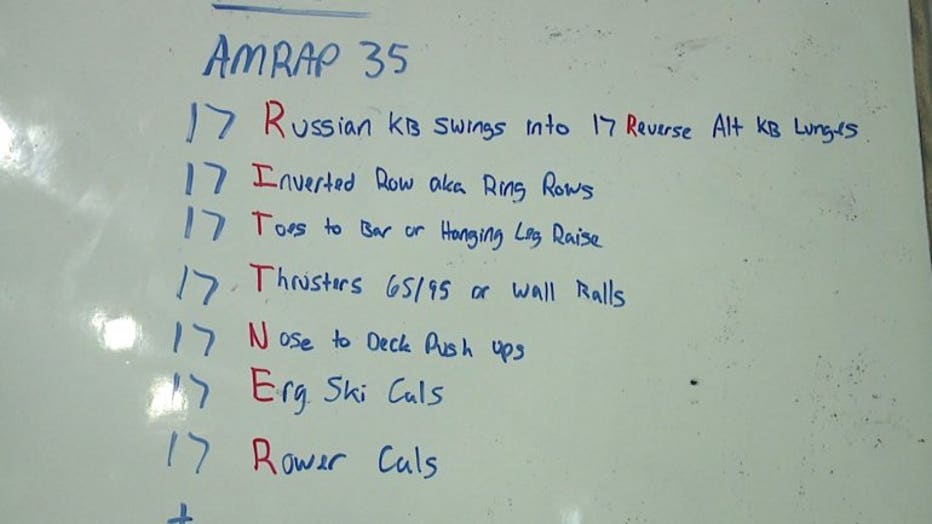 AMRAP 35
17 Russian KB Swings into 17 Reverse Alt KB Lunges
17 Inverted Row aka Ring Rows
17 Toes to Bar or Hanging Leg Raise
17 Thrusters 65/95 or Wall Balls
17 Nose to Deck Push ups
17 Erg Ski Cals
17 Rower Cals
+